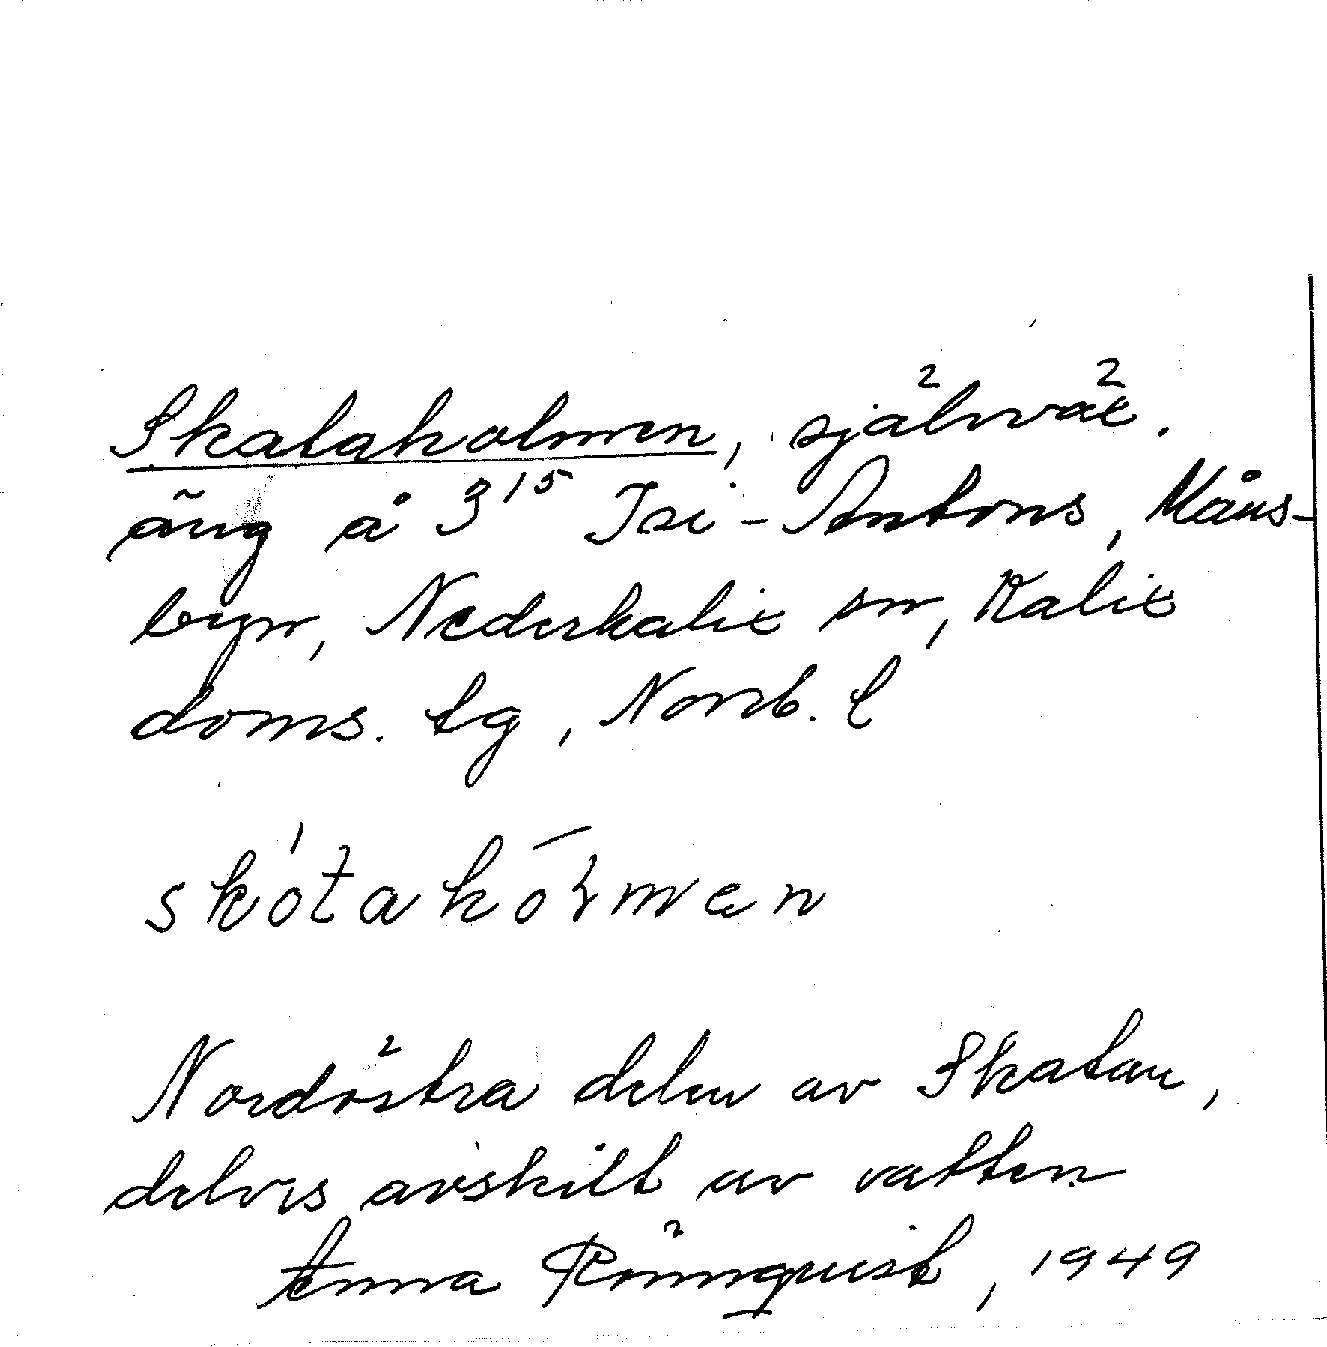 Skataholmen, självväx.
äng å 3¹⁵ Isi-Antons, Måns-
byn, Nederkalix sn, Kalix
doms. tg, Norrb. l
Nordöstra delen av Skatan,
delvis avskilt av vatten
Anna Rönnquist, 1949